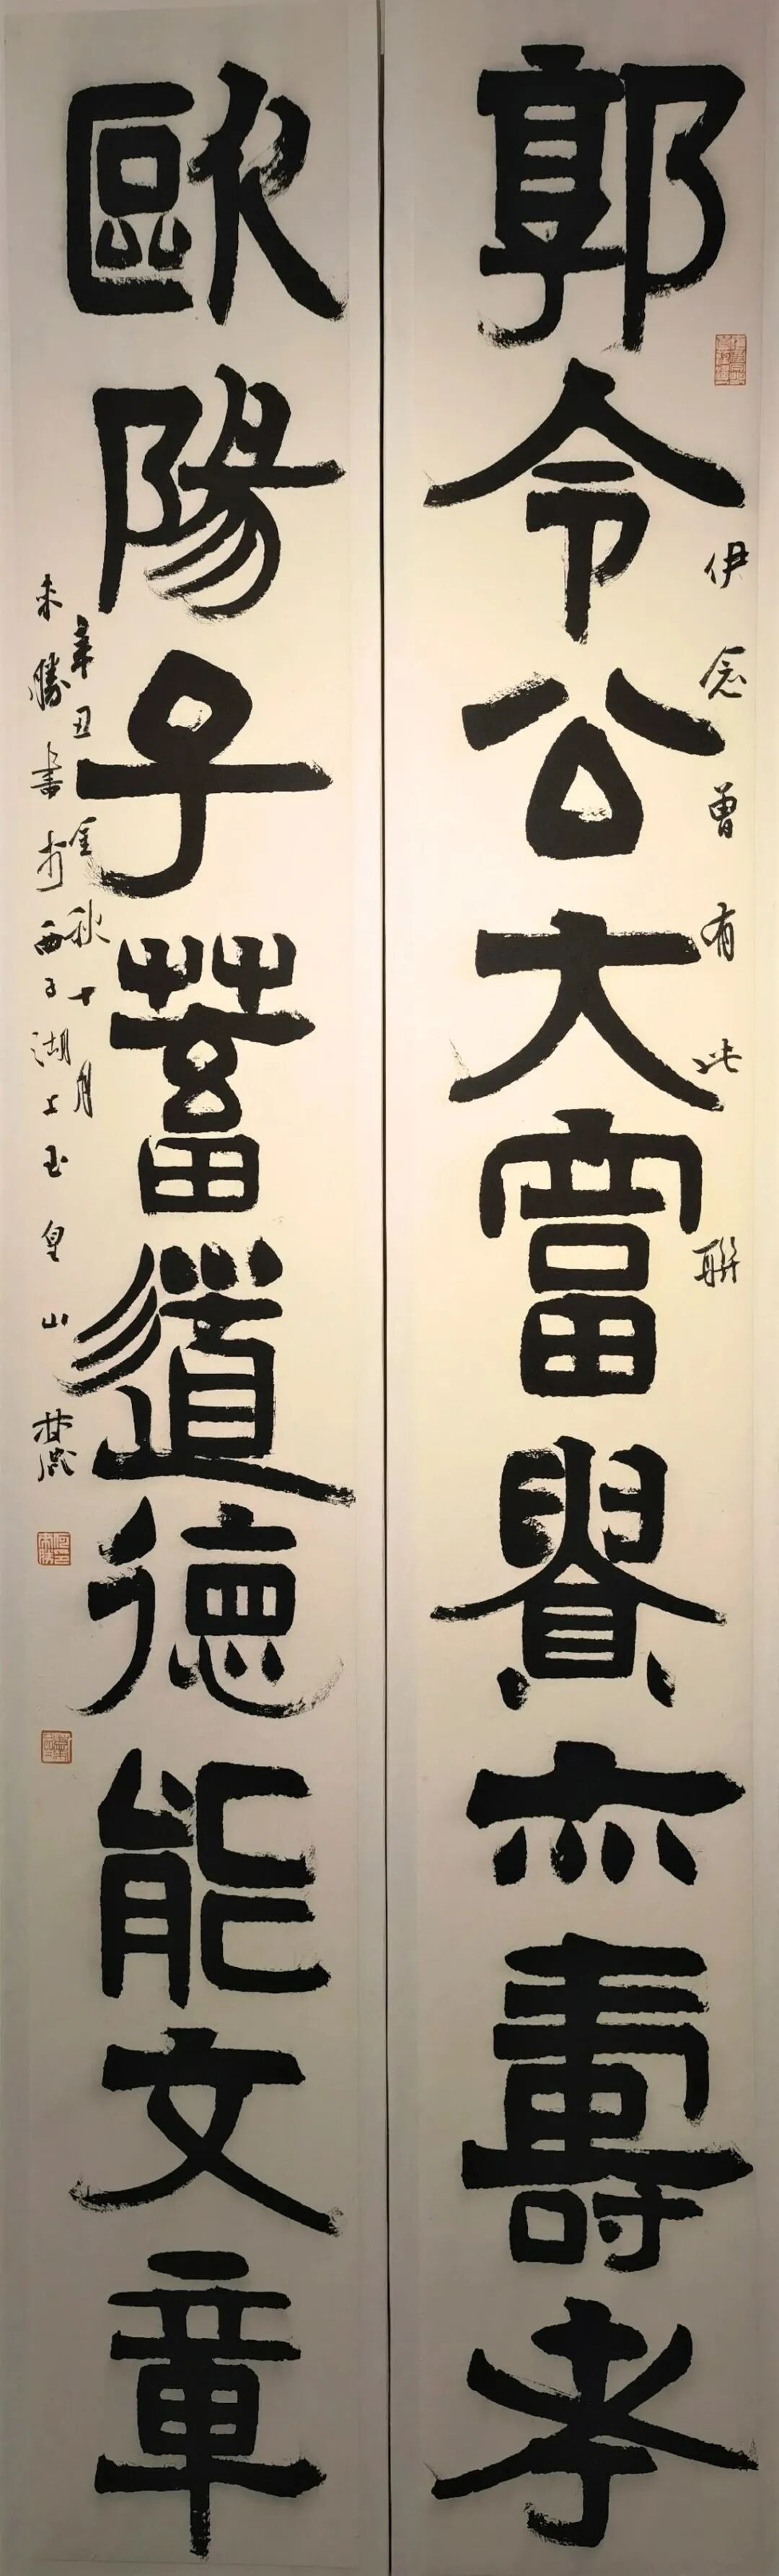 郭令公大富貴亦壽考
伊念曾有此聯
歐陽子蓄道德能文章
辛丑金秋十月
来勝書於西子湖上玉皇山麓